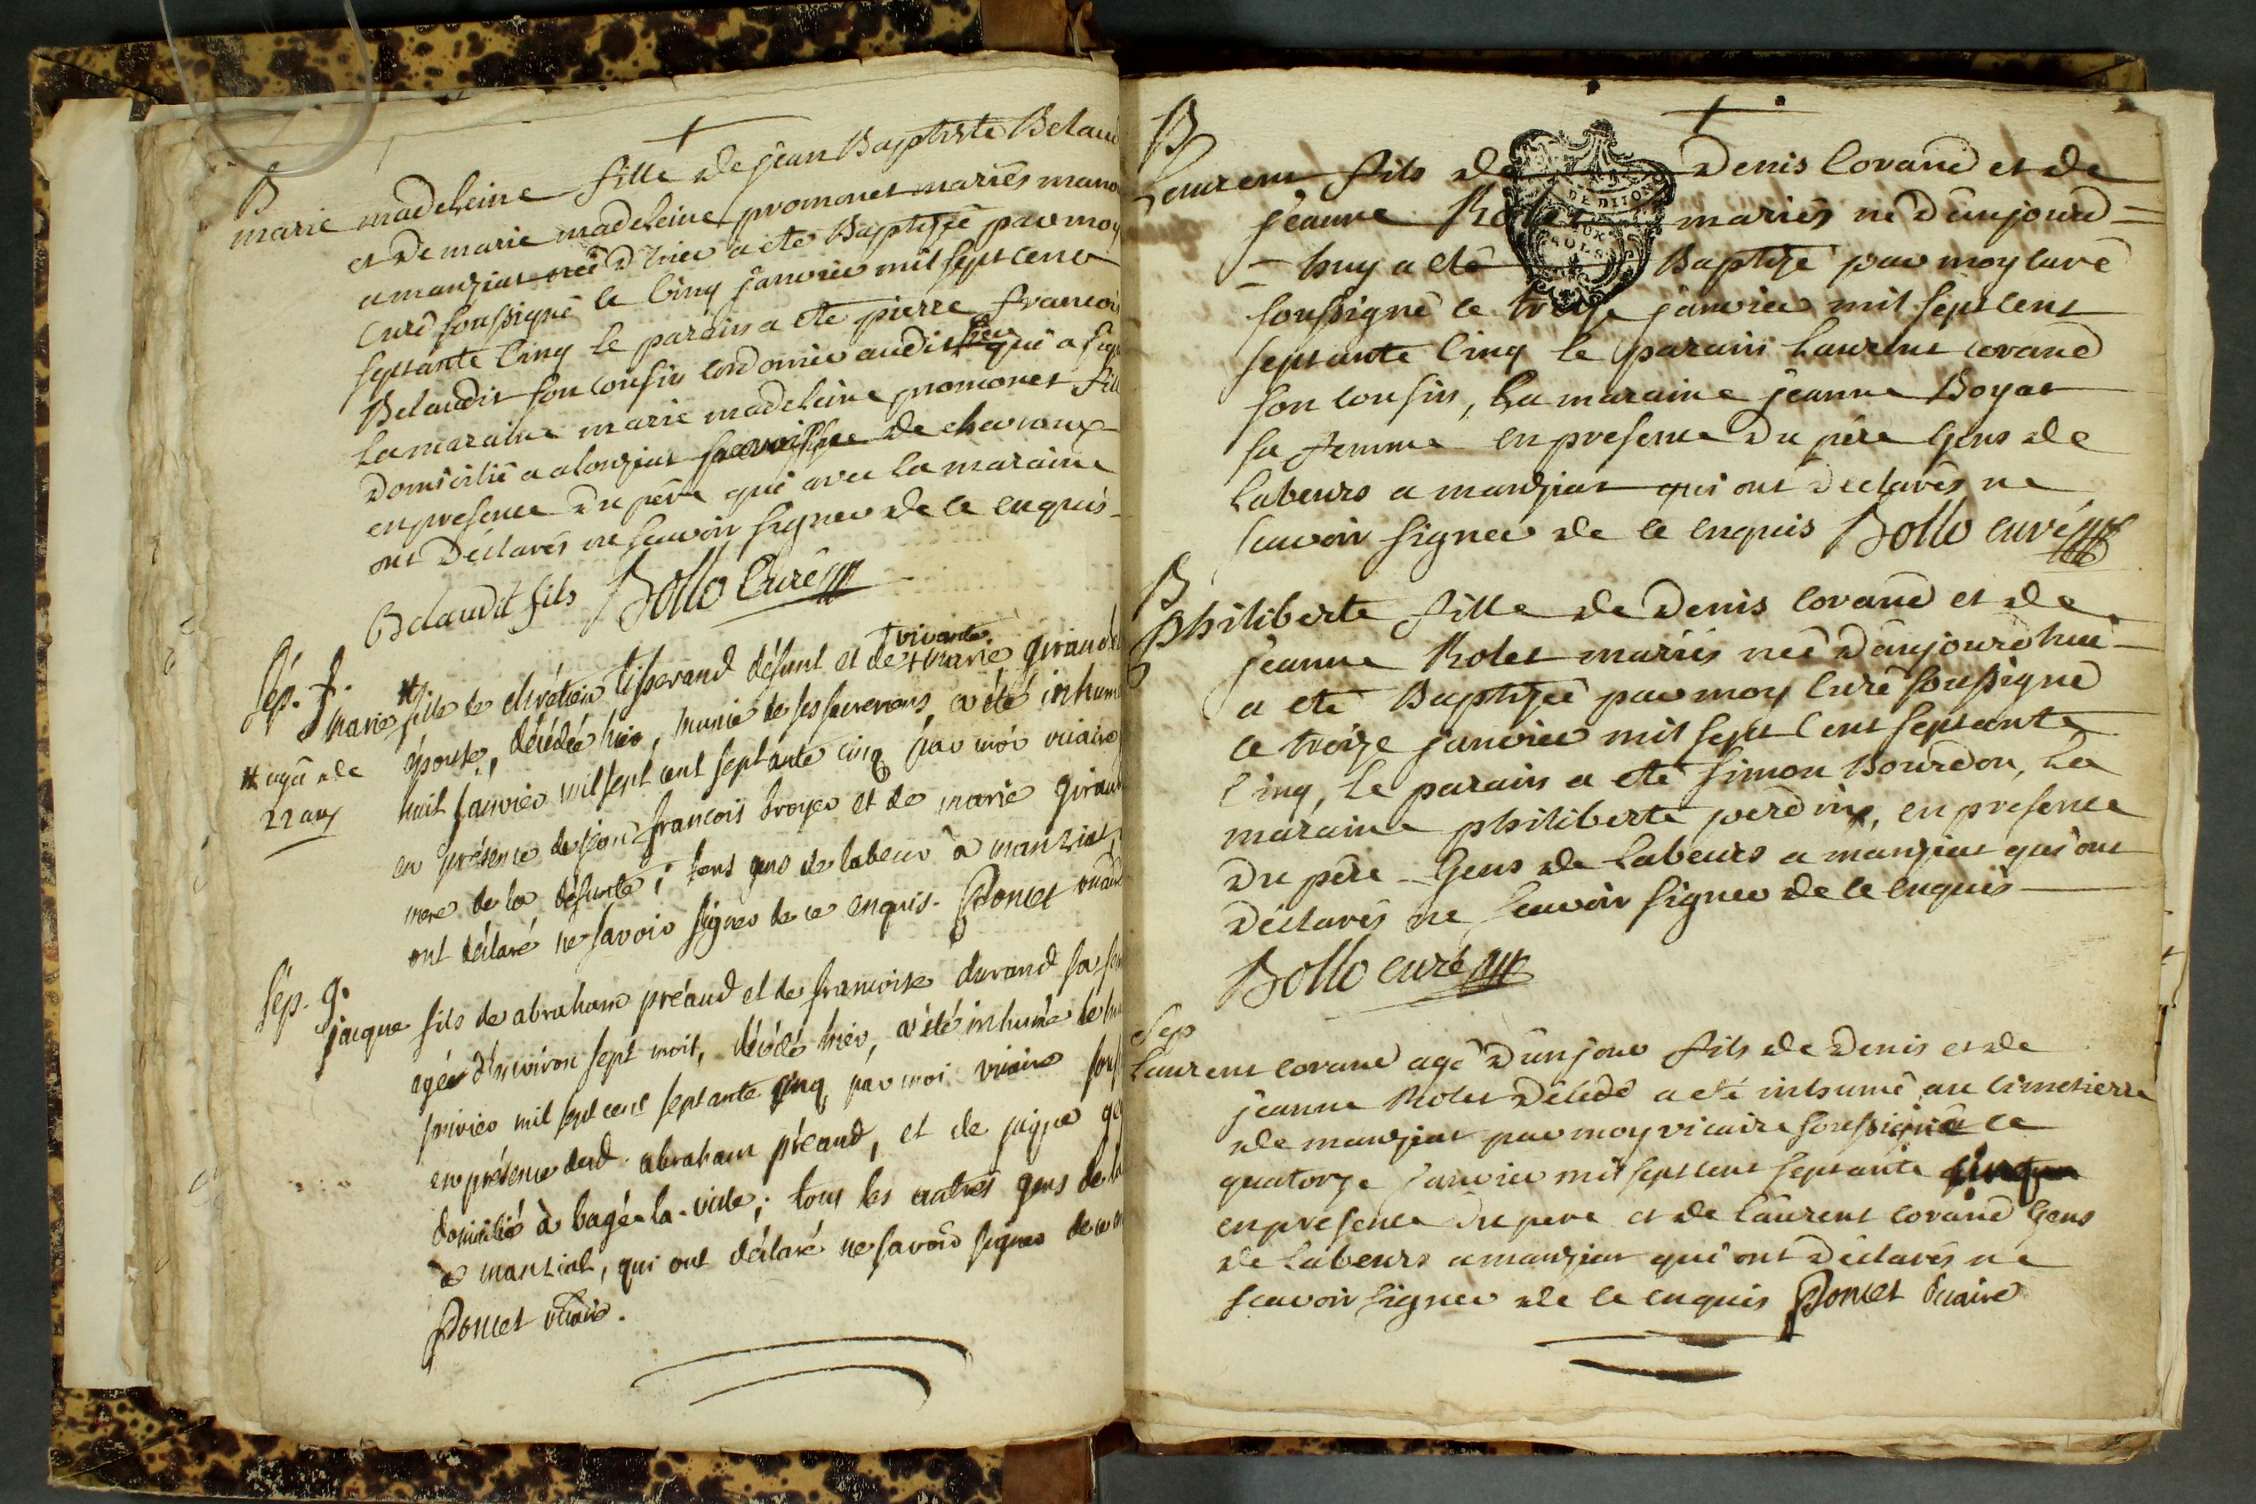 B
marie madeleine fille de jean Baptiste Belaud
et de marie madeleine promonet mariés
a manziat née d'hier a eté Baptisée par moy
Curé soussigné le Cinq janvier mil sept cent
septante Cinq le parain a eté pierre francois
Belaudit son cousin audit lieu qui a
La maraine marie madeleine promonet
Domicilié a paroisse de chavroux
en presence du père qui avec la maraine
ont Déclarés ne scavoir signer de ce enquis
Belaudit fils Bollo Curé
Sép. f. vivante
marie # fille de chrétien tisserand défunt et de + marie
épouse, décédée hier, munie de ses sacremens, a été
# agé de
22 ans
huit janvier mil sept cent septante cinq par moi vicaire
en présence de jean francois broyer et de marie
mere de la défunte; tous gens de labeur à manziat,
ont déclaré ne savoir signer de ce enquis. Poncet
Sép. g.
jacque fils de abraham préaud et de francoise durand sa
agée d'environ sept mois, décédé hier, a été inhumé le
janvier mil sept cent septante cinq, par moi vicaire
en présence dud. abraham préaud, et de
domicilié à bagé-la-ville; tous les autres gens de
à manziat, qui ont déclaré ne savoir signer de ce
Poncet vicaire.
B
Laurent fils de Denis Corand et de
jeanne Rolet mariés né d'aujourd=
=huy a eté Baptizé par moy Curé
soussigné le treize janvier mil sept Cent
septante Cinq le parain Laurent Corand
son cousin, La maraine jeanne Boyat
sa femme en presence Du père Gens de
Labeurs a manziat qui ont declarés ne
scavoir signer de ce enquis Bollo curé
DE DIJON
DEUX
SOLS
B
philiberte fille de Denis Corand et de
jeanne Rolet mariés née d'aujourdhui
a eté Baptizée par moy Curé soussigné
le treize janvier mil sept Cent septante
Cinq, Le parain a eté simon Bourdon, La
maraine philiberte, en presence
Du père Gens de Labeurs a manziat qui ont
Déclarés ne scavoir signer de ce enquis
Bollo curé
Sep
Laurent Corand agé d'un jour fils de Denis et de
jeanne Rolet Décédé a eté inhumé au Cimetierre
de manziat par moy vicaire soussigné le
quatorze janvier mil sept cent septante cinq
en presence du pere et de Laurent Corand Gens
de Labeurs a manziat qui ont Déclarés ne
scavoir signer de ce enquis Poncet vicaire